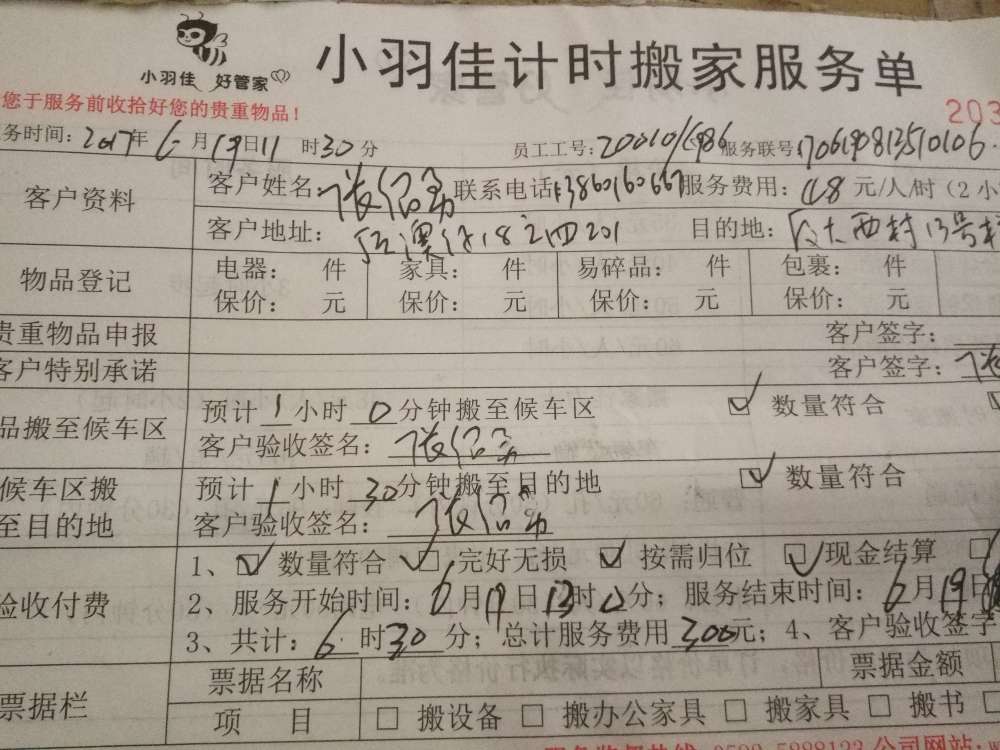 小羽佳 好管家
小羽佳计时搬家服务单
您于服务前收拾好您的贵重物品！
203
务时间：2017年6月19日11时30分 员工工号：20010 服务联号：
客户资料 客户姓名： 联系电话：13860160667 服务费用：48元/人/时（2小
客户地址： 18之四201 目的地：厦大西村13号
物品登记 电器： 件 家具： 件 易碎品： 件 包裹： 件
保价： 元 保价： 元 保价： 元 保价： 元
贵重物品申报 客户签字：
客户特别承诺 客户签字：张
品搬至候车区 预计1小时0分钟搬至候车区 ☑ 数量符合
客户验收签名：
候车区搬至目的地 预计1小时30分钟搬至目的地 ☑ 数量符合
客户验收签名：
验收付费 1、☑数量符合 ☑完好无损 ☑按需归位 ☑现金结算
2、服务开始时间：6月19日 时0分；服务结束时间：6月19日
3、共计：6时30分；总计服务费用300元；4、客户验收签字
票据栏 票据名称 票据金额
项 目 □ 搬设备 □ 搬办公家具 □ 搬家具 □ 搬书 □